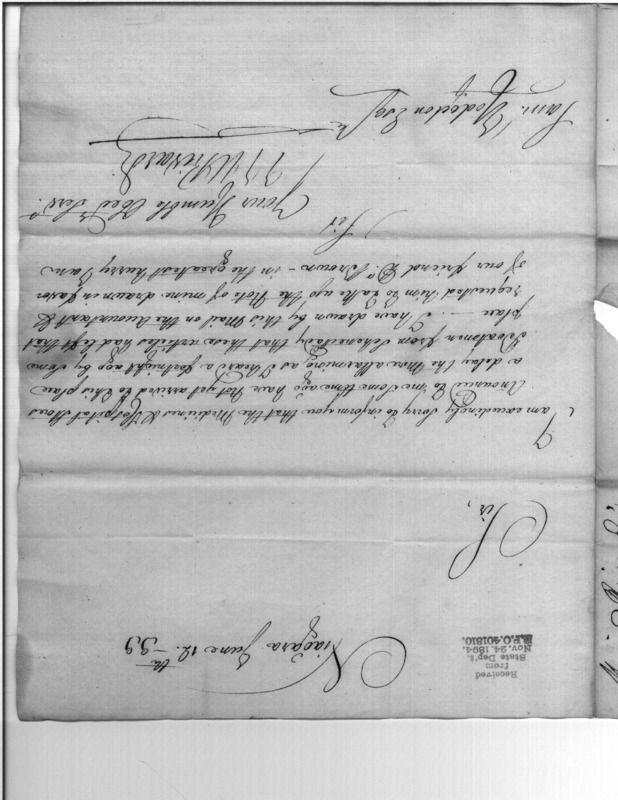 Received
from
State Dep't.
Nov. 24. 1894.
R.P.O.401810.
Niagara June 12.th -99
Sir,
I
am exceedingly sorry to inform you that the Medicines & Hospital stores
anounced to me some time ago have Not yet arrived to this place
a delay the more allarming as I heard a fortnight ago by some
Boatsmen from Schenectady that these articles had left that
place —. I have drawn by this Mail on the Accountant &
requested him to take up the Note of mine drawn in favor
of our friend Dr. Brown — in the greatest hurry I am
Sir
Your Humble Obed Servt
Sam. Hodgdon Esqr